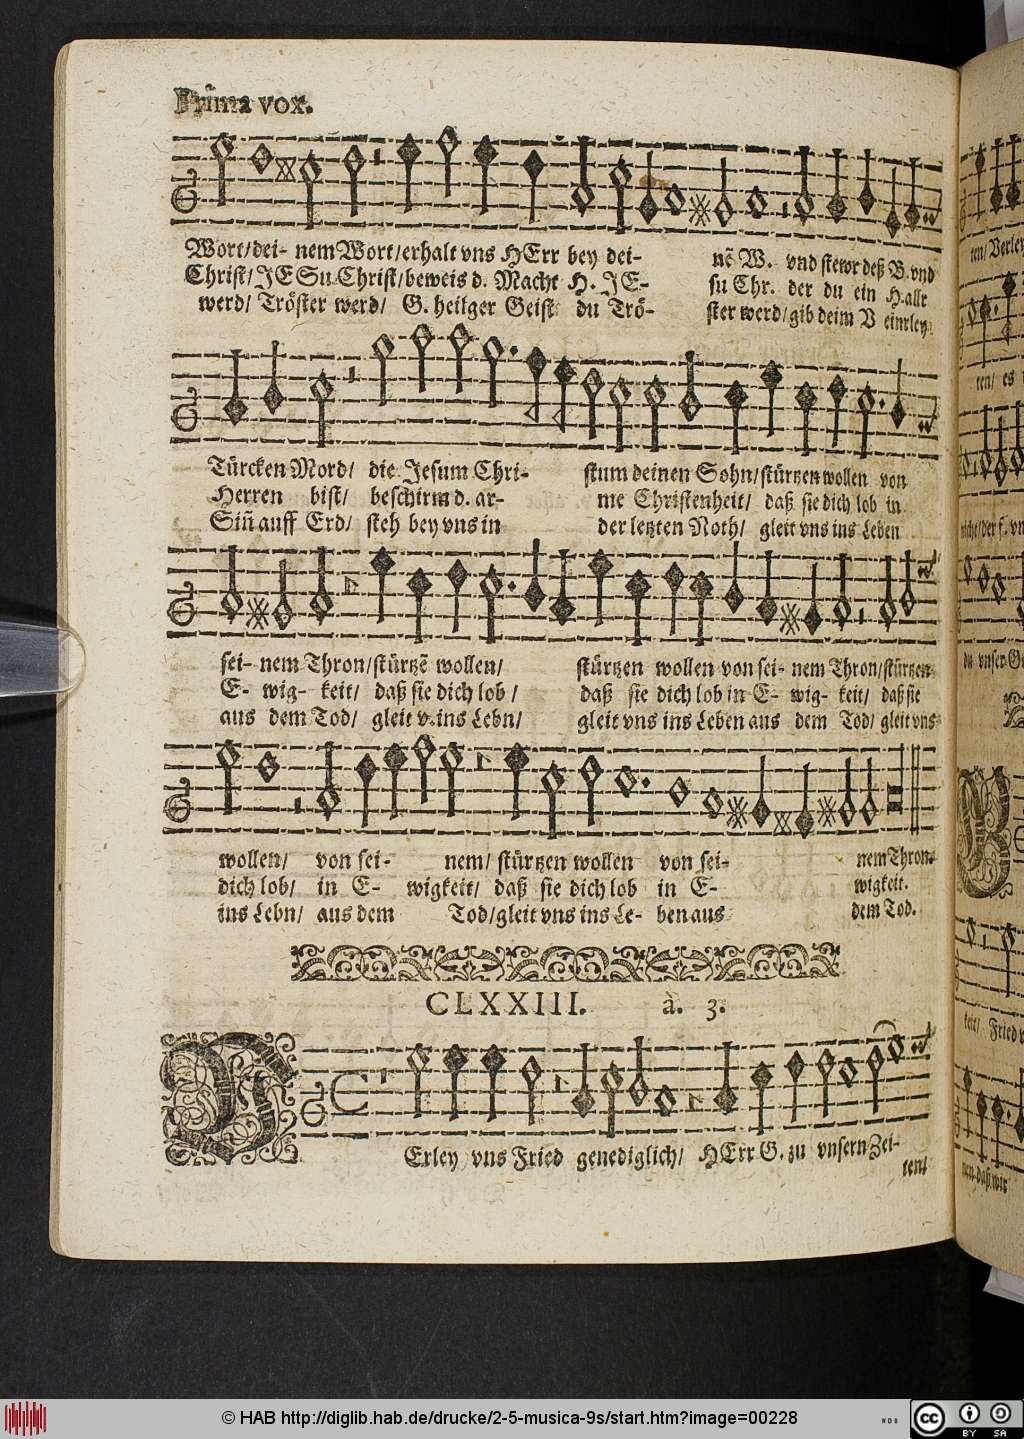 Prima vox.
Wort/dei- nem Wort/erhalt vns HErr bey dei- nẽ W. vnd stewr deß B. vnd
Christ/JESu Christ/beweis d. Macht H. JE- su Chr. der du ein H. allr
werd/ Tröster werd/ G. heilger Geist du Trö- ster werd/gib deim V einrley
Türcken Mord/ die Jesum Chri- stum deinen Sohn/stürtzen wollen von
Herren bist/ beschirm d. ar- me Christenheit/ daß sie dich lob in
Siñ auff Erd/ steh bey vns in der letzten Noth/ gleit vns ins Leben
sei- nem Thron/stürtzẽ wollen/ stürtzen wollen von sei- nem Thron/stürtzen
E- wig- keit/ daß sie dich lob / daß sie dich lob in E- wig- keit/ daß sie
aus dem Tod/ gleit v. ins Lebn/ gleit vns ins Leben aus dem Tod/ gleit vns
wollen/ von sei- nem/ stürtzen wollen von sei- nem Thron.
dich lob/ in E- wigkeit/ daß sie dich lob in E- wigkeit.
ins Lebn/ aus dem Tod/gleit vns ins Le- ben aus dem Tod.
CLXXIII. à. 3.
VErley vns Fried genediglich/ HErr G. zu vnsern Zei-
ten/
© HAB http://diglib.hab.de/drucke/2-5-musica-9s/start.htm?image=00228
cc BY SA